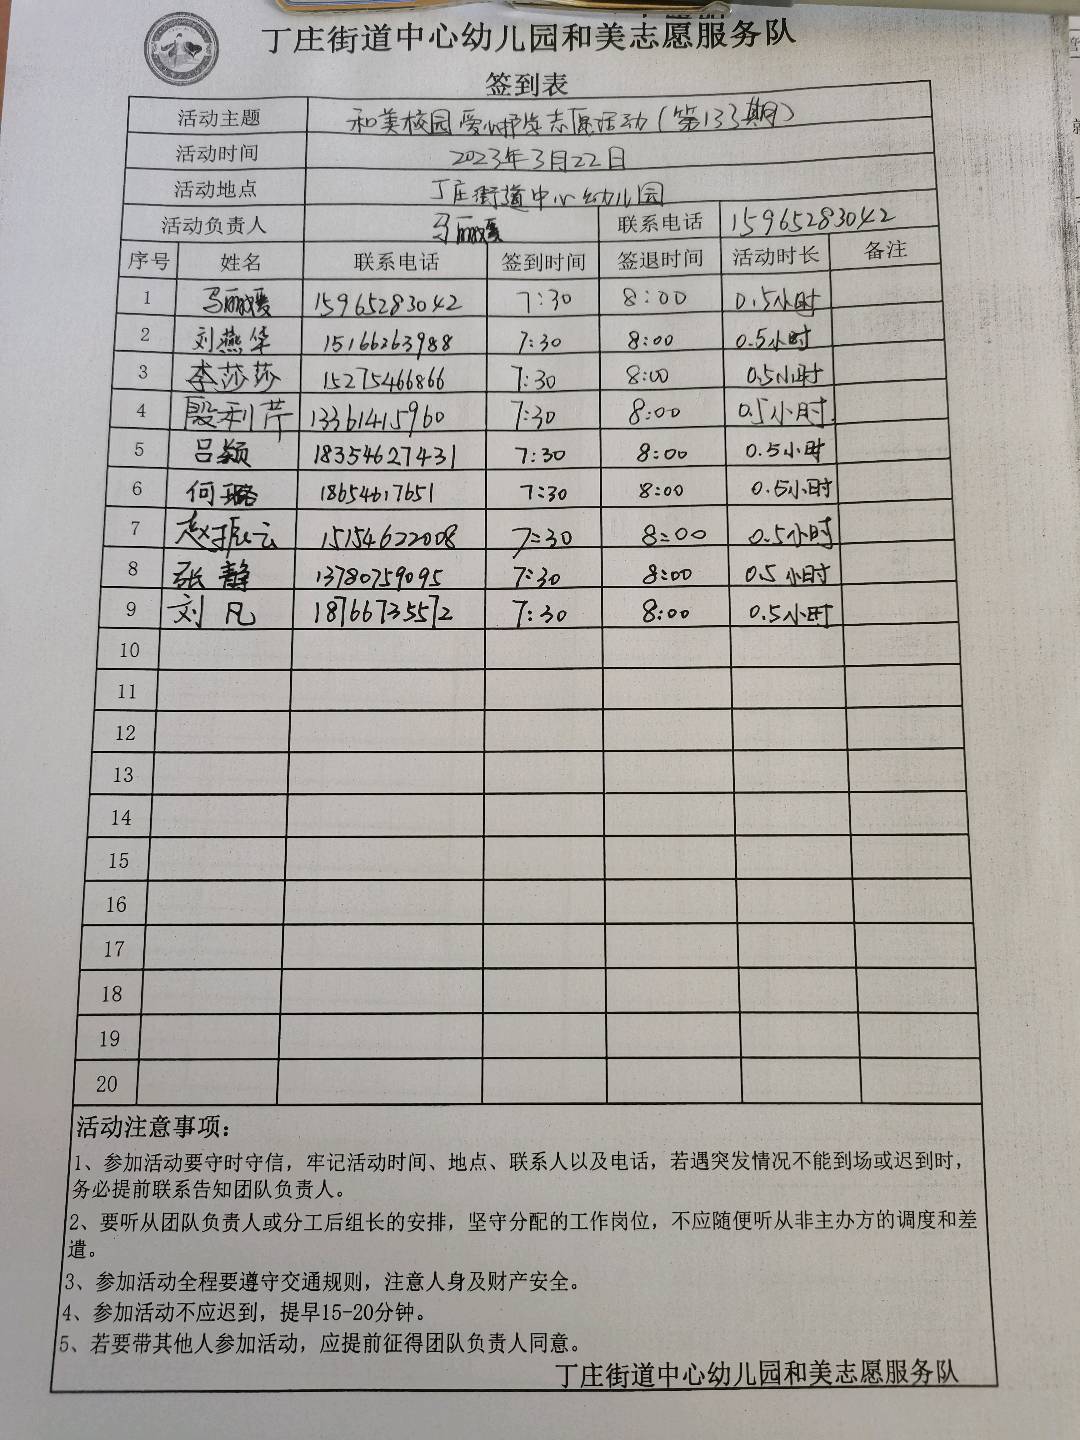 丁庄街道中心幼儿园和美志愿服务队
签到表
活动主题 和美校园爱心护学志愿活动(第133期)
活动时间 2023年3月22日
活动地点 丁庄街道中心幼儿园
活动负责人 马丽媛 联系电话 15965283042
序号 姓名 联系电话 签到时间 签退时间 活动时长 备注
1 马丽媛 15965283042 7:30 8:00 0.5小时
2 刘燕华 15166263988 7:30 8:00 0.5小时
3 李莎莎 15275466866 7:30 8:00 0.5小时
4 殷利芹 13361415960 7:30 8:00 0.5小时
5 吕颖 18354627431 7:30 8:00 0.5小时
6 何璐 18654617651 7:30 8:00 0.5小时
7 赵振云 15154622008 7:30 8:00 0.5小时
8 张静 13780759095 7:30 8:00 0.5小时
9 刘凡 18766735572 7:30 8:00 0.5小时
10
11
12
13
14
15
16
17
18
19
20
活动注意事项：
1、参加活动要守时守信，牢记活动时间、地点、联系人以及电话，若遇突发情况不能到场或迟到时，
务必提前联系告知团队负责人。
2、要听从团队负责人或分工后组长的安排，坚守分配的工作岗位，不应随便听从非主办方的调度和差
遣。
3、参加活动全程要遵守交通规则，注意人身及财产安全。
4、参加活动不应迟到，提早15-20分钟。
5、若要带其他人参加活动，应提前征得团队负责人同意。
丁庄街道中心幼儿园和美志愿服务队